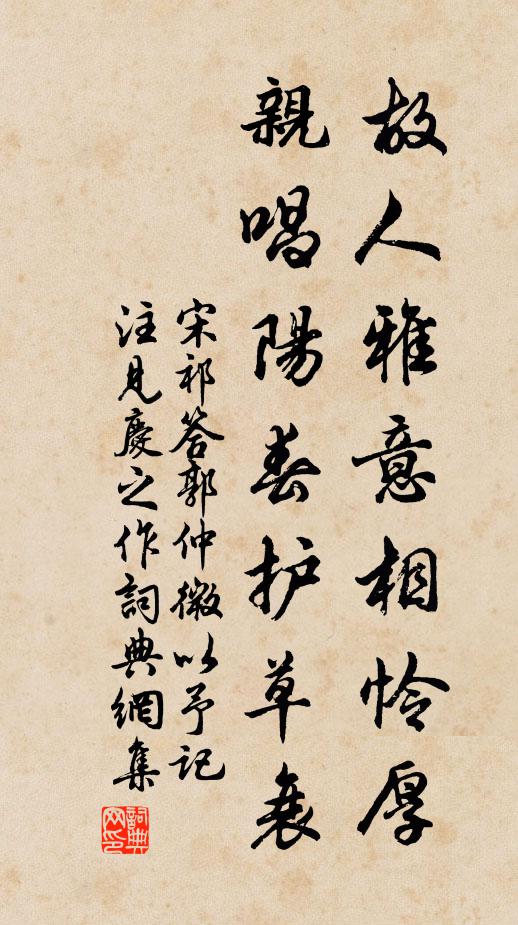 故人雅意相怜厚
親唱陽春护草衰
宋祁答郭仲微以予記
注見慶之作詞典網集
詞典网印